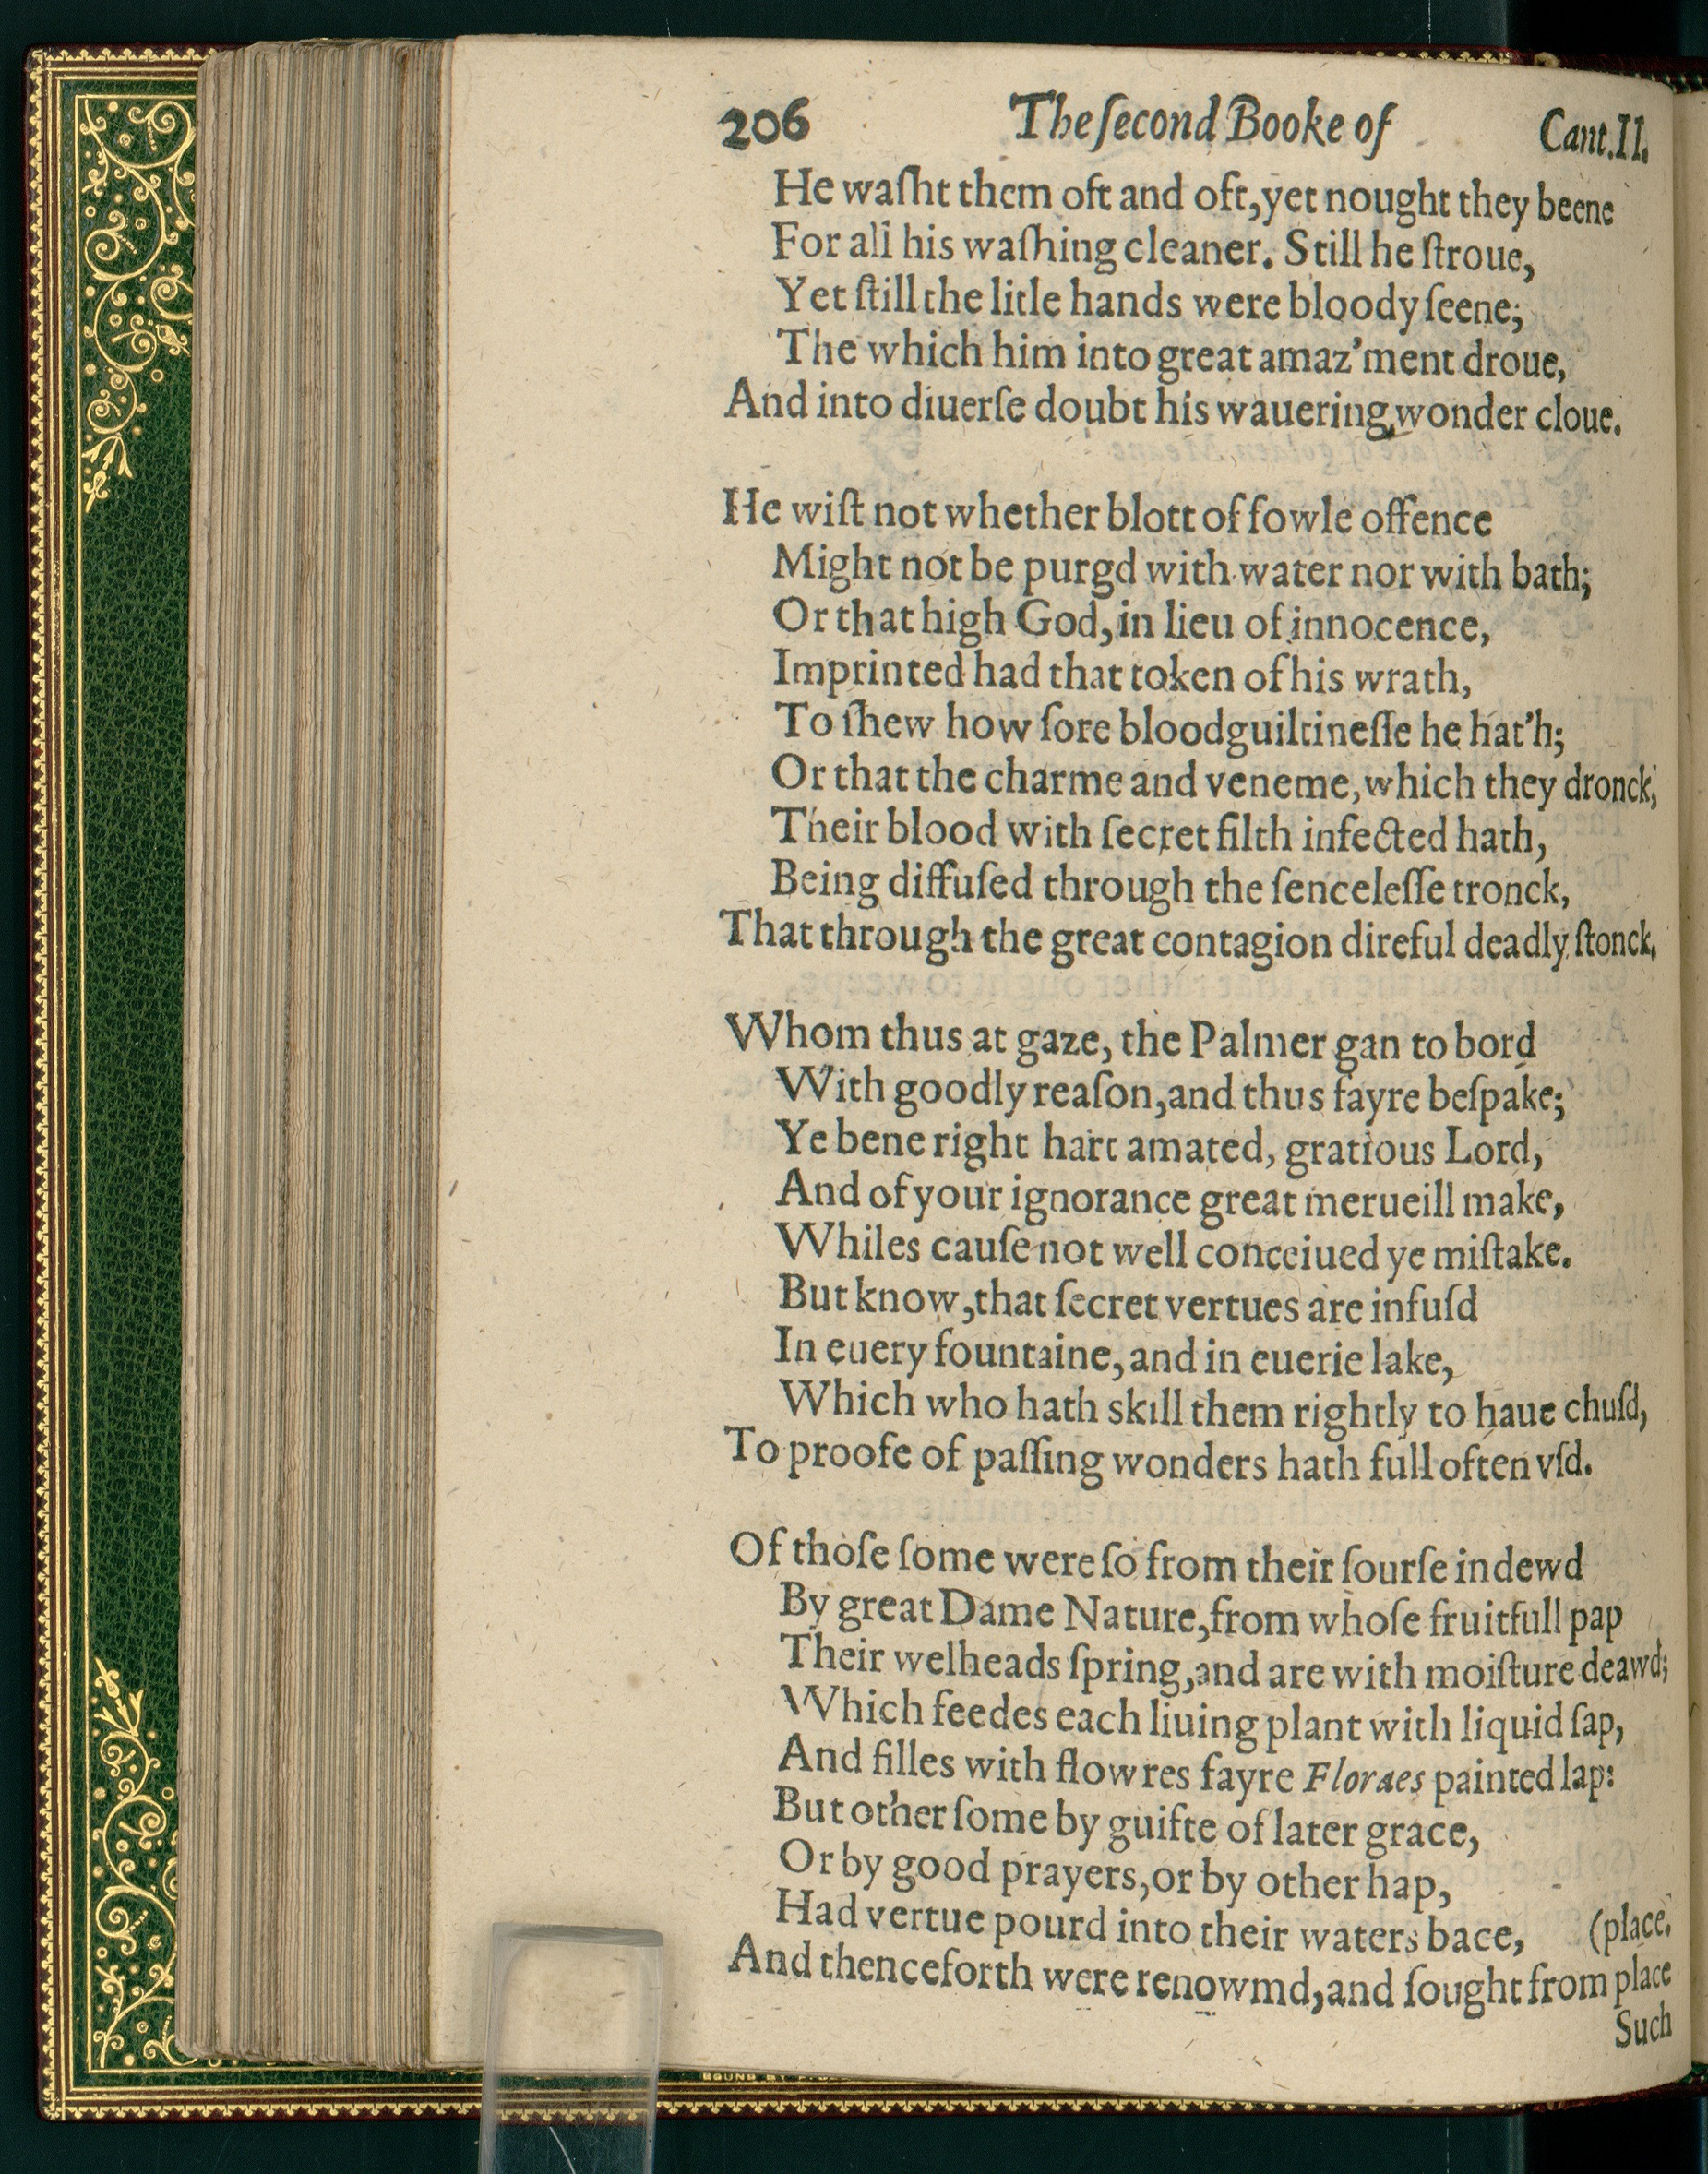 206 The ſecond Booke of Cant.II.
He waſht them oft and oft,yet nought they beene
For all his waſhing cleaner. Still he ſtroue,
Yet ſtill the litle hands were bloody ſeene;
The which him into great amaz'ment droue,
And into diuerſe doubt his wauering wonder cloue.
He wiſt not whether blott of fowle offence
Might not be purgd with water nor with bath;
Or that high God, in lieu of innocence,
Imprinted had that token of his wrath,
To ſhew how ſore bloodguiltineſſe he hat'h;
Or that the charme and veneme,which they dronck,
Their blood with ſecret filth infected hath,
Being diffuſed through the ſenceleſſe tronck,
That through the great contagion direful deadly ſtonck.
Whom thus at gaze, the Palmer gan to bord
With goodly reaſon,and thus fayre beſpake;
Ye bene right hart amated, gratious Lord,
And of your ignorance great merueill make,
Whiles cauſe not well conceiued ye miſtake.
But know,that ſecret vertues are infuſd
In euery fountaine, and in euerie lake,
Which who hath skill them rightly to haue chuſd,
To proofe of paſſing wonders hath full often vſd.
Of thoſe ſome were ſo from their ſourſe indewd
By great Dame Nature,from whoſe fruitfull pap
Their welheads ſpring,and are with moiſture deawd;
Which feedes each liuing plant with liquid ſap,
And filles with flowres fayre Floraes painted lap:
But other ſome by guifte of later grace,
Or by good prayers,or by other hap,
Had vertue pourd into their waters bace, (place.
And thenceforth were renowmd,and ſought from place
Such